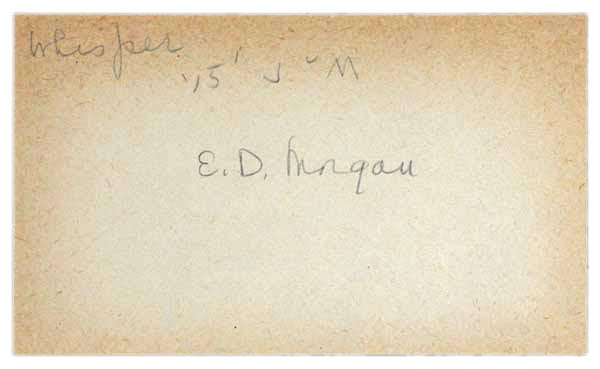 Whisper
'15' J. "M
E. D. Morgan